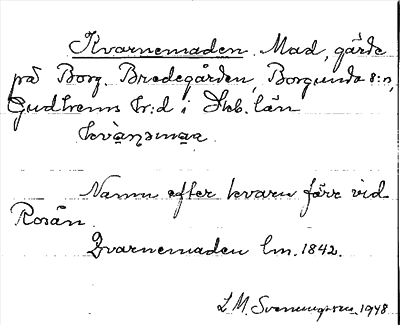 Kvarnemaden. Mad, gärde
på Borg. Bredegården, Borgunda s:n,
Gudhems hr:d i Skb. län
Namn efter kvarn förr vid
Rosån.
Qvarnemaden lm. 1842.
L M. Svenungsson 1948